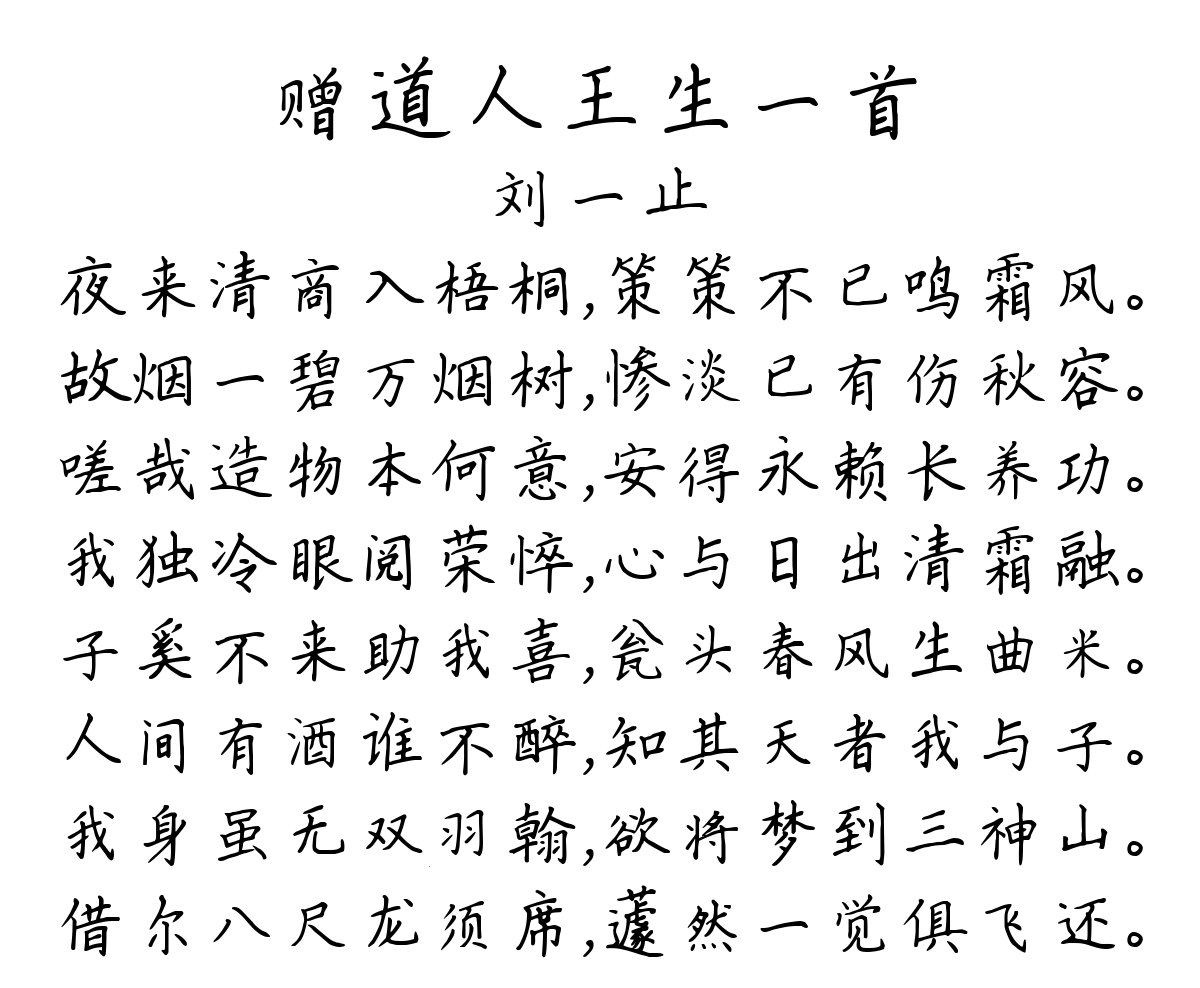 赠道人王生一首
刘一止
夜来清商入梧桐,策策不已鸣霜风。
故烟一碧万烟树,惨淡已有伤秋容。
嗟哉造物本何意,安得永赖长养功。
我独冷眼阅荣悴,心与日出清霜融。
子奚不来助我喜,瓮头春风生曲米。
人间有酒谁不醉,知其天者我与子。
我身虽无双羽翰,欲将梦到三神山。
借尔八尺龙须席,蘧然一觉俱飞还。